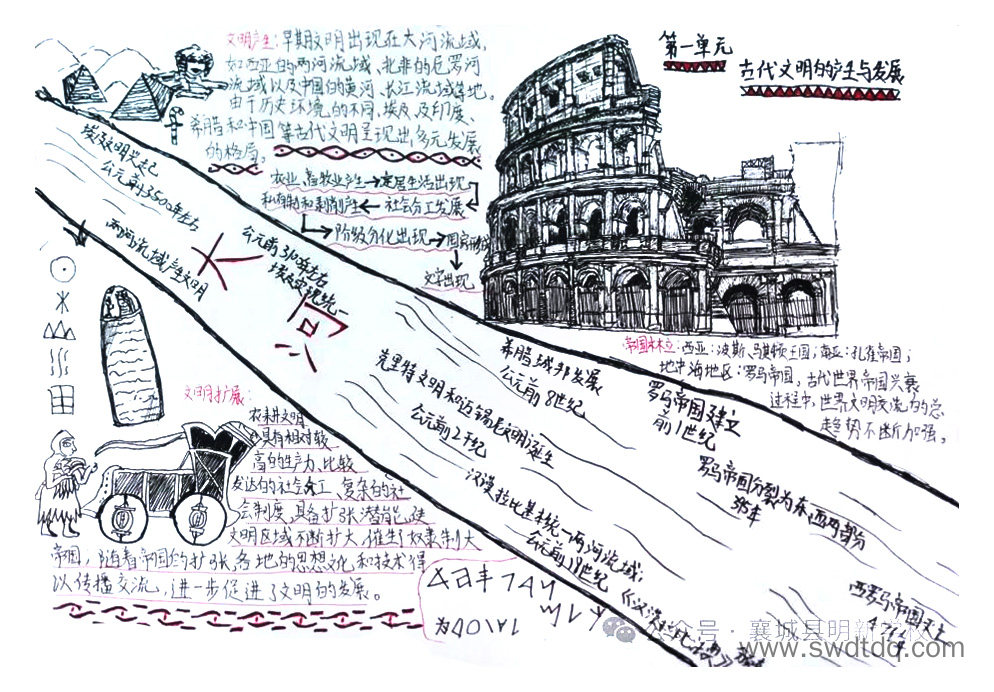 第一单元
古代文明的产生与发展
文明产生：早期文明出现在大河流域，
如西亚的两河流域、北非的尼罗河
流域以及中国的黄河、长江流域等地。
由于历史环境的不同，埃及、及印度、
希腊和中国等古代文明呈现出多元发展
的格局。
农业、畜牧业产生→定居生活出现
私有制和剥削产生←社会分工发展
阶级分化出现→国家形成
文字出现
埃及文明兴起
公元前3500年左右
两河流域产生文明
大河
公元前3100年左右
埃及实现统一
克里特文明和迈锡尼文明诞生
公元前2千纪
希腊城邦发展
公元前8世纪
汉谟拉比基本统一两河流域；
公元前18世纪
《汉谟拉比法典》
罗马帝国建立
前1世纪
罗马帝国分裂为东、西两部分
395年
西罗马帝国灭亡
476年
帝国林立：西亚：波斯、马其顿王国；南亚：孔雀帝国；
地中海地区：罗马帝国，古代世界帝国兴衰
过程中，世界文明交流的总
趋势不断加强。
文明扩展：
农耕文明
具有相对较
高的生产力、比较
发达的社会分工、复杂的社
会制度，具备扩张潜能，使
文明区域不断扩大，催生奴隶制大
帝国，随着帝国的扩张，各地的思想文化和技术得
以传播交流，进一步促进了文明的发展。
公众号·襄城县明新学校
www.swdtdq.com